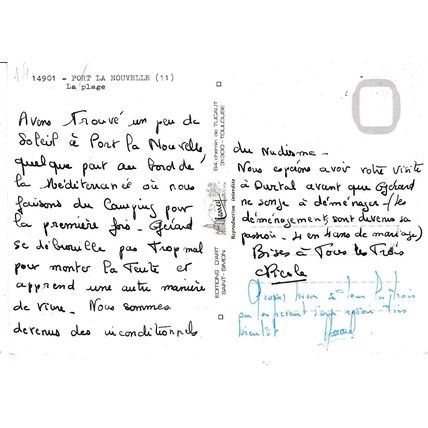 14901 - PORT LA NOUVELLE (11)
La plage
Avons trouvé un peu de
Soleil à Port la Nouvelle,
quelque part au bord de
la Méditerranée où nous
faisons du Camping pour
la première fois - Gérard
se débrouille pas trop mal
pour monter la Tente et
apprend une autre manière
de vivre. Nous sommes
devenus des inconditionnels
EDITIONS D'ART
SAINT-SIMON
64, chemin de TUCAUT
31300 - TOULOUSE
Reproduction interdite
du Nudisme -
Nous espérons avoir votre visite
à Durtal avant que Gérard
ne songe à déménager - (les
déménagements sont devenus sa
passion - 4 en 4 ans de mariage)
Bises à Tous les Trois
Nicole
Grosses bises à tous les trois
en espérant vous
bientôt